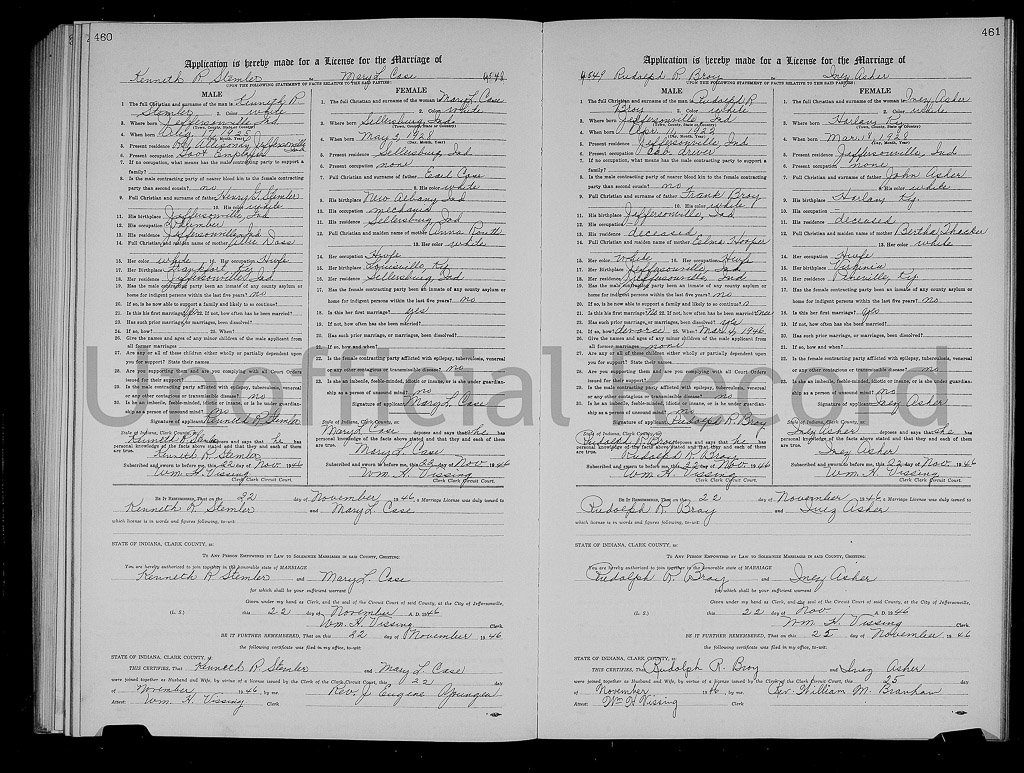 460
Application is hereby made for a License for the Marriage of
Kenneth R Stemler to Mary L Case 4548
UPON THE FOLLOWING STATEMENT OF FACTS RELATIVE TO THE SAID PARTIES:
MALE
1. The full Christian and surname of the man is Kenneth R
Stemler 2. Color white
3. Where born Jeffersonville Ind
(Town, County, State or Country)
4. When born Aug 19 1925
(Day, Month, Year)
5. Present residence Jeffersonville Ind
6. Present occupation Govt Employee
7. If no occupation, what means has the male contracting party to support a
family?
8. Is the male contracting party of nearer blood kin to the female contracting
party than second cousin? no
9. Full Christian and surname of father Henry G Stemler
10. His color white
11. His birthplace Jeffersonville Ind
12. His occupation Plumber
13. His residence Jeffersonville Ind
14. Full Christian and maiden name of mother
15. Her color white 16. Her occupation Hwfe
17. Her birthplace Frankfort Ky
18. Her residence Jeffersonville Ind
19. Has the male contracting party been an inmate of any county asylum or
home for indigent persons within the last five years? no
20. If so, is he now able to support a family and likely to so continue?
21. Is this his first marriage? yes 22. If not, how often has he been married?
23. Has such prior marriage, or marriages, been dissolved?
24. If so, how? 25. When?
26. Give the names and ages of any minor children of the male applicant from
all former marriages
27. Are any or all of these children either wholly or partially dependent upon
you for support? State their names.
28. Are you supporting them and are you complying with all Court Orders
issued for their support?
29. Is the male contracting party afflicted with epilepsy, tuberculosis, venereal
or any other contagious or transmissible disease? no
30. Is he an imbecile, feeble-minded, idiotic or insane, or is he under guardian-
ship as a person of unsound mind? no
Signature of applicant Kenneth R Stemler
State of Indiana, Clark County, ss:
Kenneth R Stemler deposes and says that he has
personal knowledge of the facts above stated and that they and each of them
are true.
Kenneth R Stemler
Subscribed and sworn to before me, this 22 day of Nov. 1946
Wm. H. Vissing
Clerk Clark Circuit Court.
FEMALE
1. The full Christian and surname of the woman Mary L Case
2. Color white
3. Where born Sellersburg, Ind
(Town, County, State or Country)
4. When born May 2 1928
(Day, Month, Year)
5. Present residence Sellersburg, Ind
6. Present occupation none
7. Full Christian and surname of father Earl Case
8. His color white
9. His birthplace New Albany Ind
10. His occupation mechanic
11. His residence Sellersburg Ind
12. Full Christian and maiden name of mother Anna Routh
13. Her color white
14. Her occupation Hwfe
15. Her birthplace Louisville, Ky
16. Her residence Sellersburg Ind
17. Has the female contracting party been an inmate of any county asylum or
home for indigent persons within the last five years? no
18. Is this her first marriage? yes
19. If not, how often has she been married?
20. Has such prior marriage, or marriages, been dissolved?
21. If so, how and when?
22. Is the female contracting party afflicted with epilepsy, tuberculosis, venereal
or any other contagious or transmissible disease? no
23. Is she an imbecile, feeble-minded, idiotic or insane, or is she under guardian-
ship as a person of unsound mind? no
Signature of applicant Mary L Case
State of Indiana, Clark County, ss:
Mary L Case deposes and says that she has
personal knowledge of the facts above stated and that they and each of them
are true.
Mary L Case
Subscribed and sworn to before me, this 22 day of Nov 1946
Wm. H. Vissing
Clerk Clark Circuit Court.
BE IT REMEMBERED, That on the 22 day of November 1946, a Marriage License was duly issued to
Kenneth R Stemler and Mary L Case
which license is in words and figures following, to-wit:
STATE OF INDIANA, CLARK COUNTY, ss:
TO ANY PERSON EMPOWERED BY LAW TO SOLEMNIZE MARRIAGES IN SAID COUNTY, GREETING:
You are hereby authorized to join together in the honorable state of MARRIAGE
Kenneth R Stemler and Mary L. Case
for which shall be your sufficient warrant
Given under my hand as Clerk, and the seal of the Circuit Court of said County, at the City of Jeffersonville,
(L. S.) this 22 day of November A. D. 1946
Wm. H. Vissing Clerk.
BE IT FURTHER REMEMBERED, That on this 22 day of November 1946
the following certificate was filed in my office, to-wit:
STATE OF INDIANA, CLARK COUNTY, ss:
THIS CERTIFIES, That Kenneth R Stemler and Mary L Case
were joined together as Husband and Wife, by virtue of a license issued by the Clerk of the Clark Circuit Court, this 22 day
of November 1946, by me, Rev. J Eugene
Attest: Wm. H. Vissing Clerk
461
Application is hereby made for a License for the Marriage of
4549 Rudolph R Bray to Inez Asher
UPON THE FOLLOWING STATEMENT OF FACTS RELATIVE TO THE SAID PARTIES:
MALE
1. The full Christian and surname of the man is Rudolph R
Bray 2. Color white
3. Where born Jeffersonville Ind
(Town, County, State or Country)
4. When born Apr. 11, 1923
(Day, Month, Year)
5. Present residence Jeffersonville, Ind
6. Present occupation Cab driver
7. If no occupation, what means has the male contracting party to support a
family?
8. Is the male contracting party of nearer blood kin to the female contracting
party than second cousin? no
9. Full Christian and surname of father Frank Bray
10. His color white
11. His birthplace Jeffersonville, Ind
12. His occupation
13. His residence deceased
14. Full Christian and maiden name of mother Edna Hooper
15. Her color White 16. Her occupation Hwfe
17. Her birthplace Jeffersonville, Ind
18. Her residence Jeffersonville, Ind
19. Has the male contracting party been an inmate of any county asylum or
home for indigent persons within the last five years? no
20. If so, is he now able to support a family and likely to so continue?
21. Is this his first marriage? no 22. If not, how often has he been married? once
23. Has such prior marriage, or marriages, been dissolved? yes
24. If so, how? divorce 25. When? Mar 4, 1946
26. Give the names and ages of any minor children of the male applicant from
all former marriages none
27. Are any or all of these children either wholly or partially dependent upon
you for support? State their names.
28. Are you supporting them and are you complying with all Court Orders
issued for their support?
29. Is the male contracting party afflicted with epilepsy, tuberculosis, venereal
or any other contagious or transmissible disease? no
30. Is he an imbecile, feeble-minded, idiotic or insane, or is he under guardian-
ship as a person of unsound mind? no
Signature of applicant Rudolph R. Bray
State of Indiana, Clark County, ss:
Rudolph R Bray deposes and says that he has
personal knowledge of the facts above stated and that they and each of them
are true.
Rudolph R Bray
Subscribed and sworn to before me, this 22 day of Nov. 1946
Wm. H. Vissing
Clerk Clark Circuit Court.
FEMALE
1. The full Christian and surname of the woman Inez Asher
2. Color white
3. Where born Harlan, Ky
(Town, County, State or Country)
4. When born Mar. 18, 1928
(Day, Month, Year)
5. Present residence Jeffersonville, Ind
6. Present occupation none
7. Full Christian and surname of father John Asher
8. His color white
9. His birthplace Harlan, Ky.
10. His occupation
11. His residence deceased
12. Full Christian and maiden name of mother Bertha Thacker
13. Her color white
14. Her occupation Hwfe
15. Her birthplace Virginia
16. Her residence Pikeville, Ky
17. Has the female contracting party been an inmate of any county asylum or
home for indigent persons within the last five years? no
18. Is this her first marriage? yes
19. If not, how often has she been married?
20. Has such prior marriage, or marriages, been dissolved?
21. If so, how and when?
22. Is the female contracting party afflicted with epilepsy, tuberculosis, venereal
or any other contagious or transmissible disease? no
23. Is she an imbecile, feeble-minded, idiotic or insane, or is she under guardian-
ship as a person of unsound mind? no
Signature of applicant Inez Asher
State of Indiana, Clark County, ss:
Inez Asher deposes and says that she has
personal knowledge of the facts above stated and that they and each of them
are true.
Inez Asher
Subscribed and sworn to before me, this 22 day of Nov 1946
Wm. H. Vissing
Clerk Clark Circuit Court.
BE IT REMEMBERED, That on the 22 day of November 1946, a Marriage License was duly issued to
Rudolph R Bray and Inez Asher
which license is in words and figures following, to-wit:
STATE OF INDIANA, CLARK COUNTY, ss:
TO ANY PERSON EMPOWERED BY LAW TO SOLEMNIZE MARRIAGES IN SAID COUNTY, GREETING:
You are hereby authorized to join together in the honorable state of MARRIAGE
Rudolph R Bray and Inez Asher
for which shall be your sufficient warrant
Given under my hand as Clerk, and the seal of the Circuit Court of said County, at the City of Jeffersonville,
(L. S.) this 22 day of Nov A. D. 1946
Wm. H. Vissing Clerk.
BE IT FURTHER REMEMBERED, That on this 25 day of November 1946
the following certificate was filed in my office, to-wit:
STATE OF INDIANA, CLARK COUNTY, ss:
THIS CERTIFIES, That Rudolph R. Bray and Inez Asher
were joined together as Husband and Wife, by virtue of a license issued by the Clerk of the Clark Circuit Court, this 25 day
of November 1946, by me, Rev. William M. Branham
Attest: Wm H Vissing Clerk
Unofficial Record